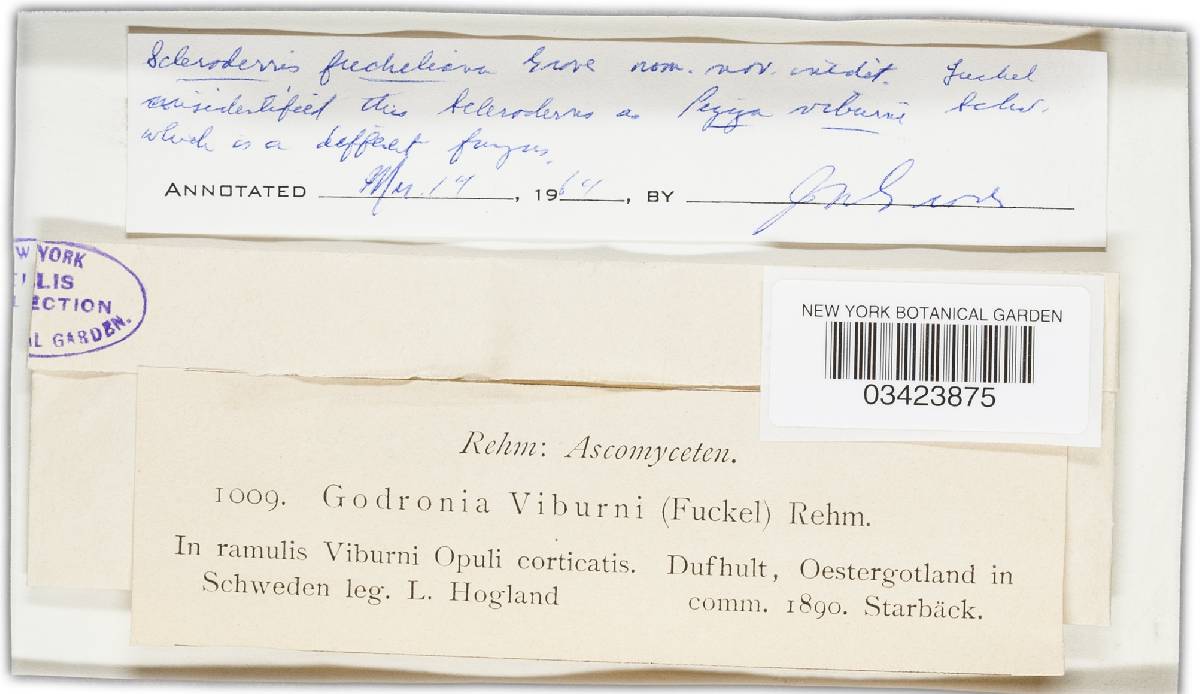 Scleroderris fuckeliana Grove nom. nov. inedit. Fuckel
misidentified this Scleroderris as Peziza viburni Schw.
which is a different fungus.
ANNOTATED Mar. 14, 1964, BY
W YORK
LLIS
LECTION
AL GARDEN.
NEW YORK BOTANICAL GARDEN
03423875
Rehm: Ascomyceten.
1009. Godronia Viburni (Fuckel) Rehm.
In ramulis Viburni Opuli corticatis. Dufhult, Oestergotland in
Schweden leg. L. Hogland comm. 1890. Starbäck.